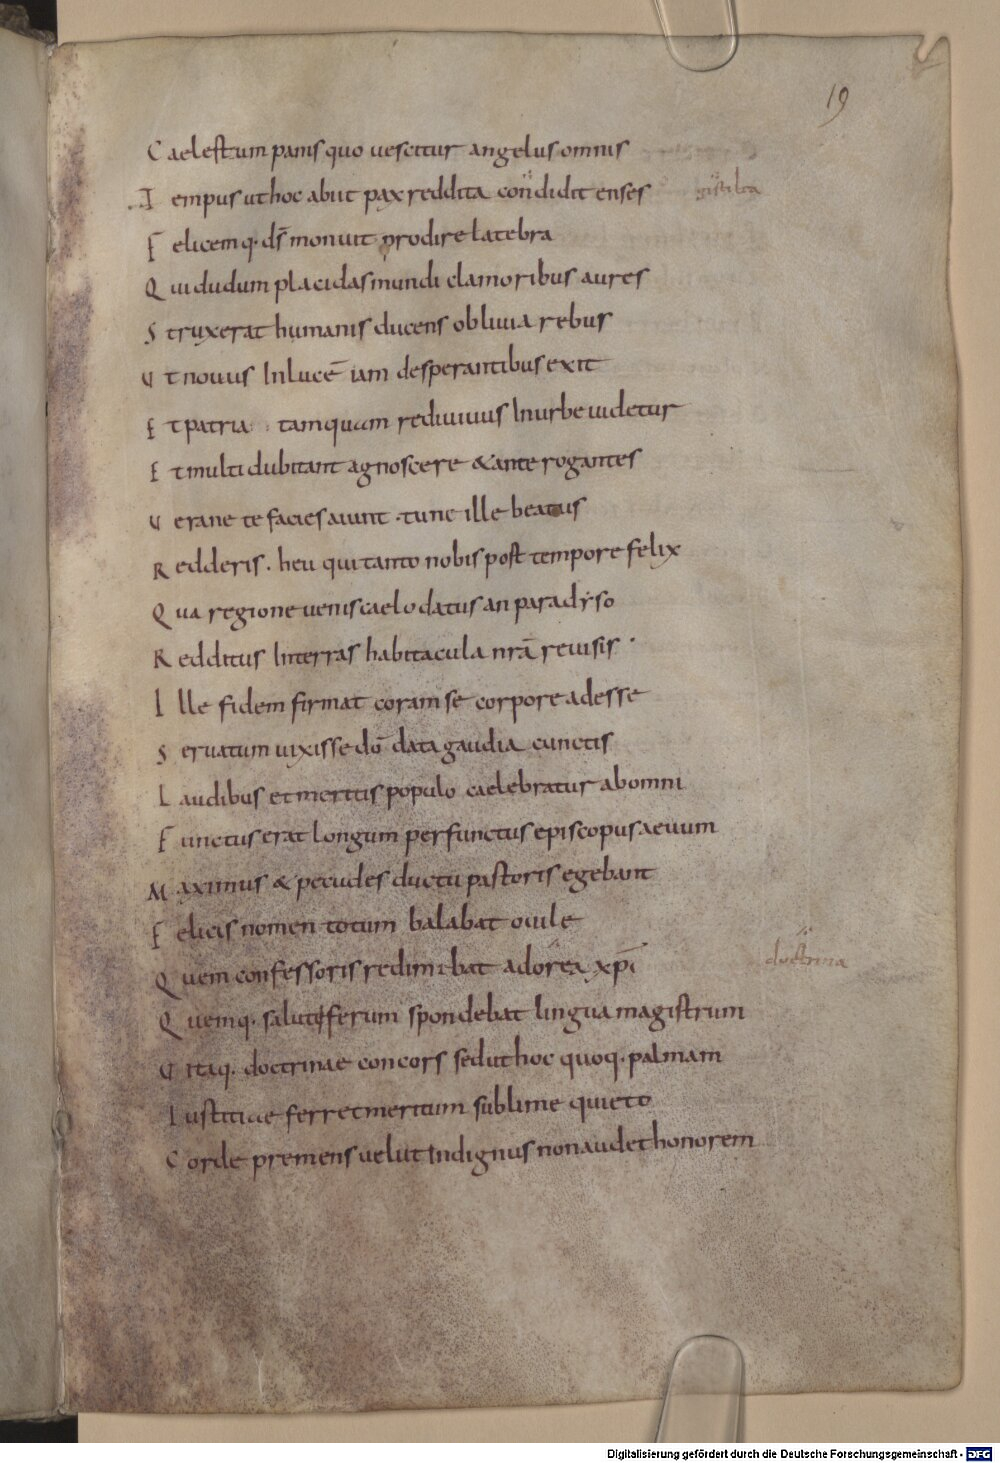 19
Caelestum panis quo uescitur angelus omnis
Tempus ut hoc abiit pax reddita condidit enses
Felicemq· ds̄ monuit prodire latebra
Qui dudum placidas mundi clamoribus aures
Struxerat humanis ducens obliuia rebus
Ut nouus In lucē iam desperantibus exit
Et patria tamquam rediuiuus In urbe uidetur
Et multi dubitant agnoscere & ante rogantes
Uerane te facies aiunt · tunc ille beatus
Redderis · heu qui tanto nobis post tempore felix
Qua regione uenis caelo datus an paradyso
Redditus In terras habitacula nrā reuisis ·
Ille fidem firmat coram se corpore adesse
Seruatum uixisse dō data gaudia cunctis
Laudibus et meritis populo caelebratur ab omni
Functus erat longum perfunctus episcopus aeuum
Maximus & pecudes ductu pastoris egebant
Felicis nomen totum balabat ouile
Quem confessoris redimibat adorea xpī
doctrina
Quemq· salutiferum spondebat lingua magistrum
Uitaq· doctrinae concors sed ut hoc quoq· palmam
Iustitiae ferret meritum sublime quieto
Corde premens uelut Indignus non audet honorem
Digitalisierung gefördert durch die Deutsche Forschungsgemeinschaft - DFG